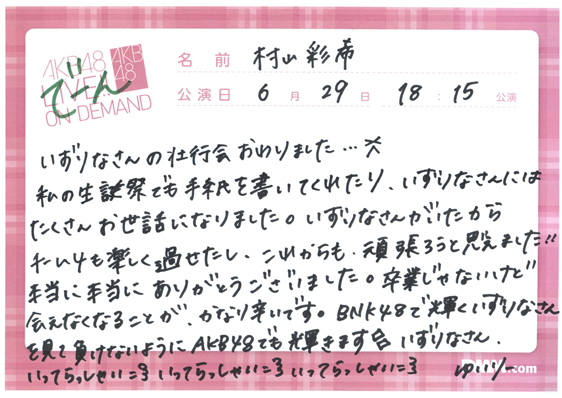 AKB48
LIVE!!
ON DEMAND
AKB
48
でーん
名前 村山彩希
公演日 6月29日 18:15公演
いずりなさんの壮行会おわりました…
私の生誕祭でも手紙を書いてくれたり、いずりなさんには
たくさんお世話になりました。いずりなさんがいたから
チーム4も楽しく過せたし、これからも、頑張ろうと思えました!!
本当に本当にありがとうございました。卒業じゃないけど
会えなくなることが、かなり辛いです。BNK48で輝くいずりなさん
を見て負けないようにAKB48でも輝きます いずりなさん、
いってらっしゃい=3 いってらっしゃい=3 いってらっしゃい=3 ゆいりー
DMM.com